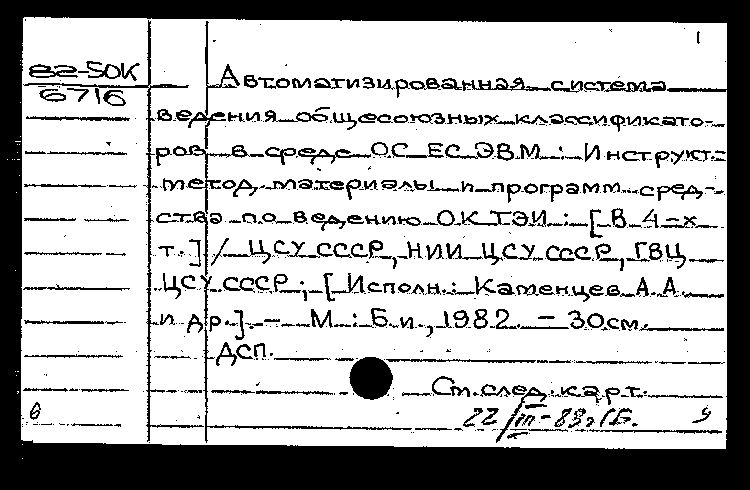 1
82-50К
6716
Автоматизированная система
ведения общесоюзных классификато-
ров в среде ОС ЕС ЭВМ : Инструкт.-
метод. материалы и программ. сред-
ства по ведению ОК ТЭИ : [В 4-х
т.] / ЦСУ СССР, НИИ ЦСУ СССР, ГВЦ
ЦСУ СССР ; [Исполн.: Каменцев А.А.
и др.]. - М : Б.и., 1982. - 30см.
ДСП.
См. след. карт.
в
22/III-83г
у